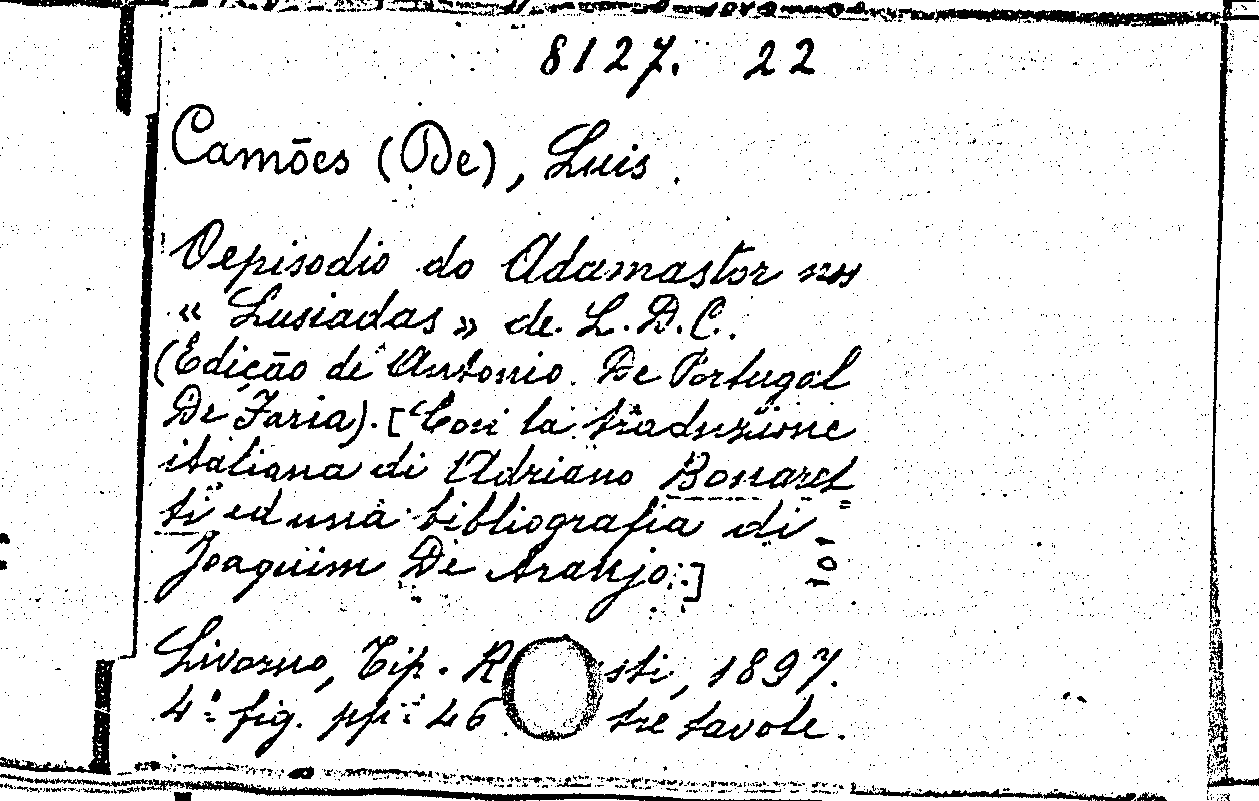 8127. 22
Camões (De), Luis.
O episodio do Adamastor nos
« Lusiadas » de L. D. C.
(Edição de Antonio De Portugal
De Faria). [Con la traduzione
italiana di Adriano Bonaret=
ti ed una bibliografia di
Joaquim De Aranjo.]
Livorno, Tip. R sti, 1897.
4.° fig. pp. 46 tre tavole.